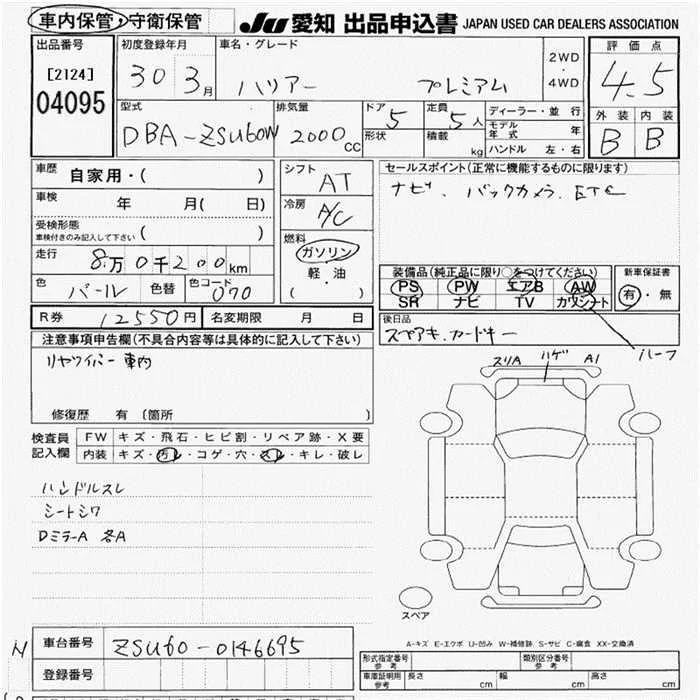 車内保管・守衛保管
JU 愛知 出品申込書 JAPAN USED CAR DEALERS ASSOCIATION
出品番号
[2124]
04095
初度登録年月
30 3月
車名・グレード
ハリアー プレミアム
2WD
・
4WD
評価点
4.5
外装 内装
B B
型式
DBA-ZSU60W
排気量
2000cc
ドア 5
形状
定員 5人
積載 kg
ディーラー・並行
モデル年式 年
ハンドル 左・右
車歴 自家用・( )
車検 年 月( 日)
受検形態
車検付きのみ記入して下さい ( )
走行 8万0千200km
色 パール 色替 色コード 070
シフト AT
冷房 A/C
燃料
ガソリン
軽・油
( )
セールスポイント(正常に機能するものに限ります)
ナビ、バックカメラ、ETC
装備品(純正品に限り○をつけてください)
PS PW エアB AW
SR ナビ TV カワシート
新車保証書
有・無
ハーフ
R券 12550円 名変期限 月 日
後日品
スペアキ、カードキー
注意事項申告欄(不具合内容等は具体的に記入して下さい)
リヤワイパー 車内
修復歴 有 〔箇所 〕
検査員記入欄
FW キズ・飛石・ヒビ割・リペア跡・X要
内装 キズ・汚レ・コゲ・穴・スレ・キレ・破レ
ハンドルスレ
シートシワ
DミラーA 各A
スリA ハゲ A1
スペア
A-キズ E-エクボ U-凹み W-補修跡 S-サビ C-腐食 XX-交換済
N 車台番号 ZSU60-0146695
登録番号
形式指定番号 参考
類別区分番号 参考
車庫証明用 参考 長さ cm 幅 cm 高さ cm